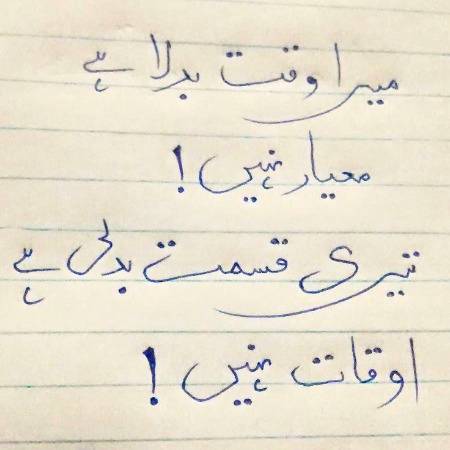 میرا وقت بدلا ہے
معیار نہیں !
تیری قسمت بدلی ہے
اوقات نہیں !